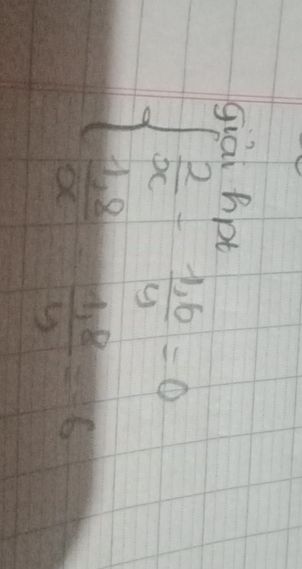 giải hpt
{ 2/x - 1,6/y = 0
1,8/x - 1,8/y = 6